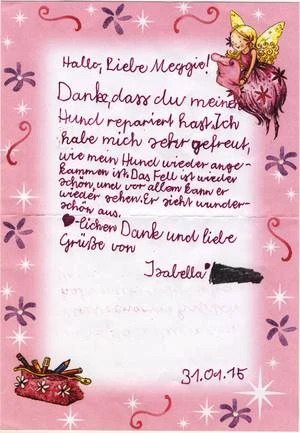 Hallo, Liebe Meggie!
Danke, dass du meinen
Hund repariert hast. Ich
habe mich sehr gefreut,
wie mein Hund wieder ange-
kammen ist. Das Fell ist wieder
schön, und vor allem kann er
wieder sehen. Er sieht wunder-
schön aus.
♥-lichen Dank und liebe
Grüße von
Isabella
31.01.15